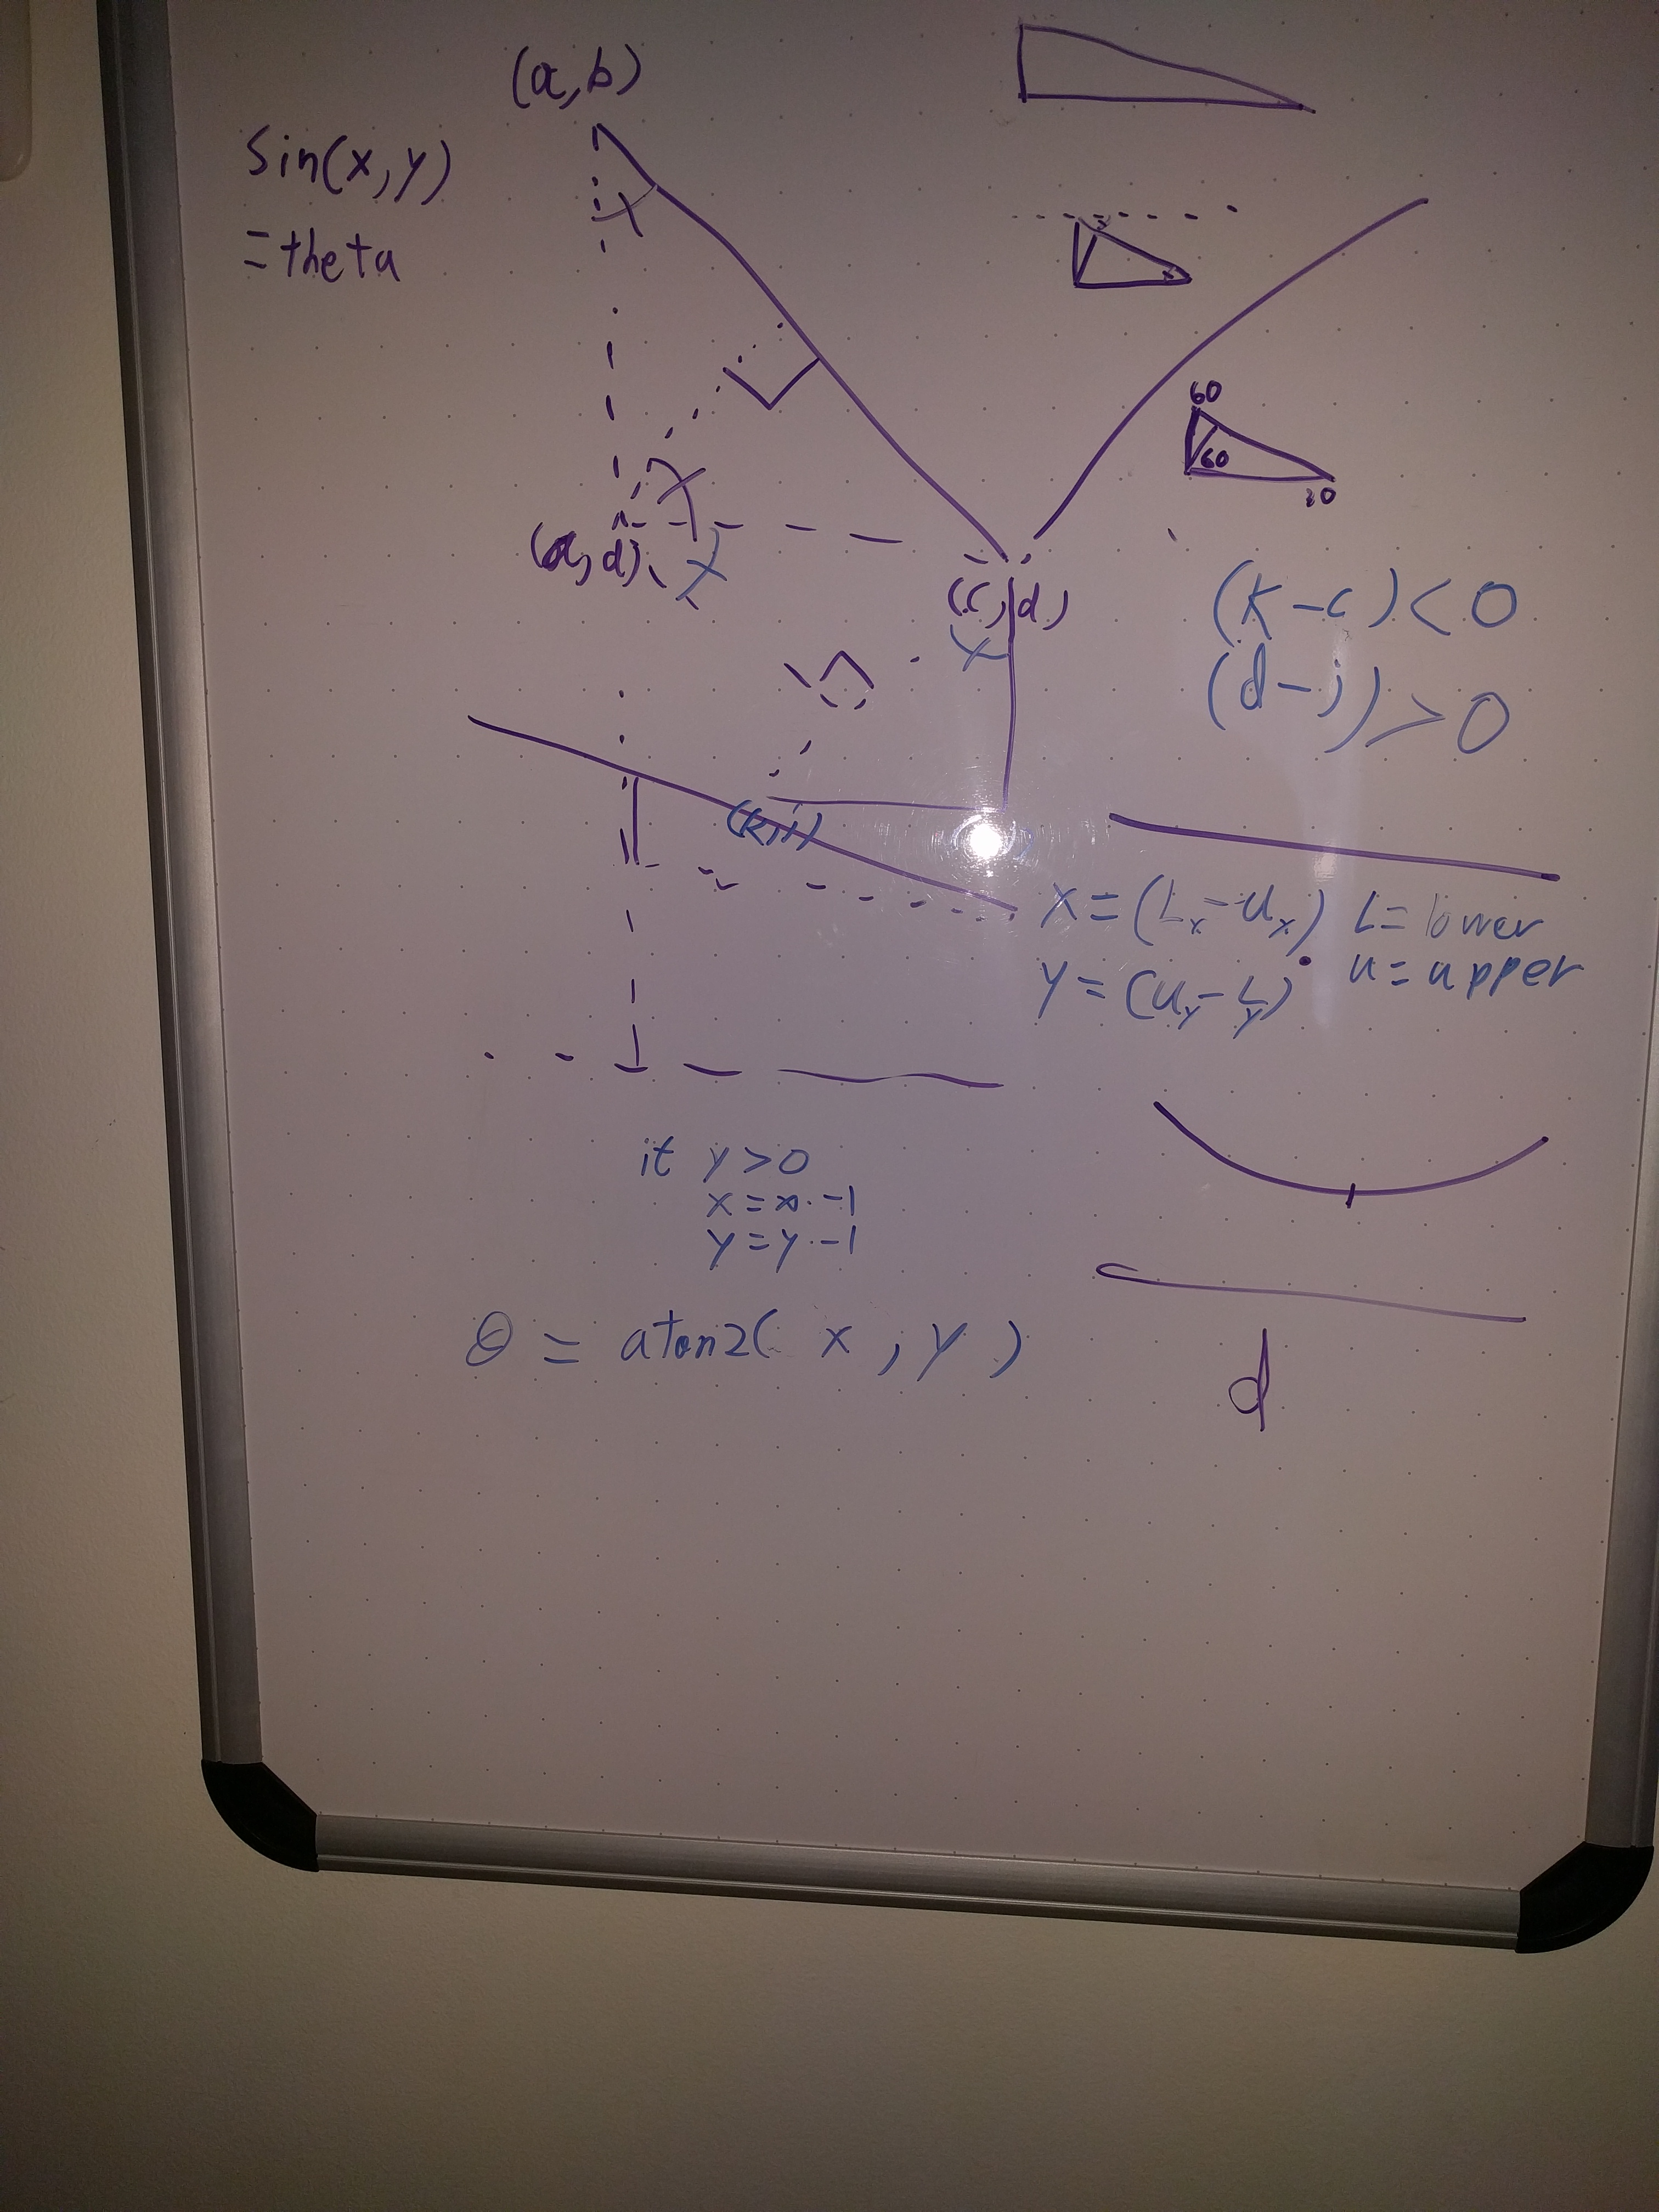 (a,b)
Sin(x,y)
=theta
60
60
30
(a,d)
(c,d)
(k-c)<0
(d-j)>0
(k,j)
x=(Lx-ux) L=lower
y=(uy-Ly) u=upper
if y>0
x=x·-1
y=y·-1
θ = atan2( x , y )
d